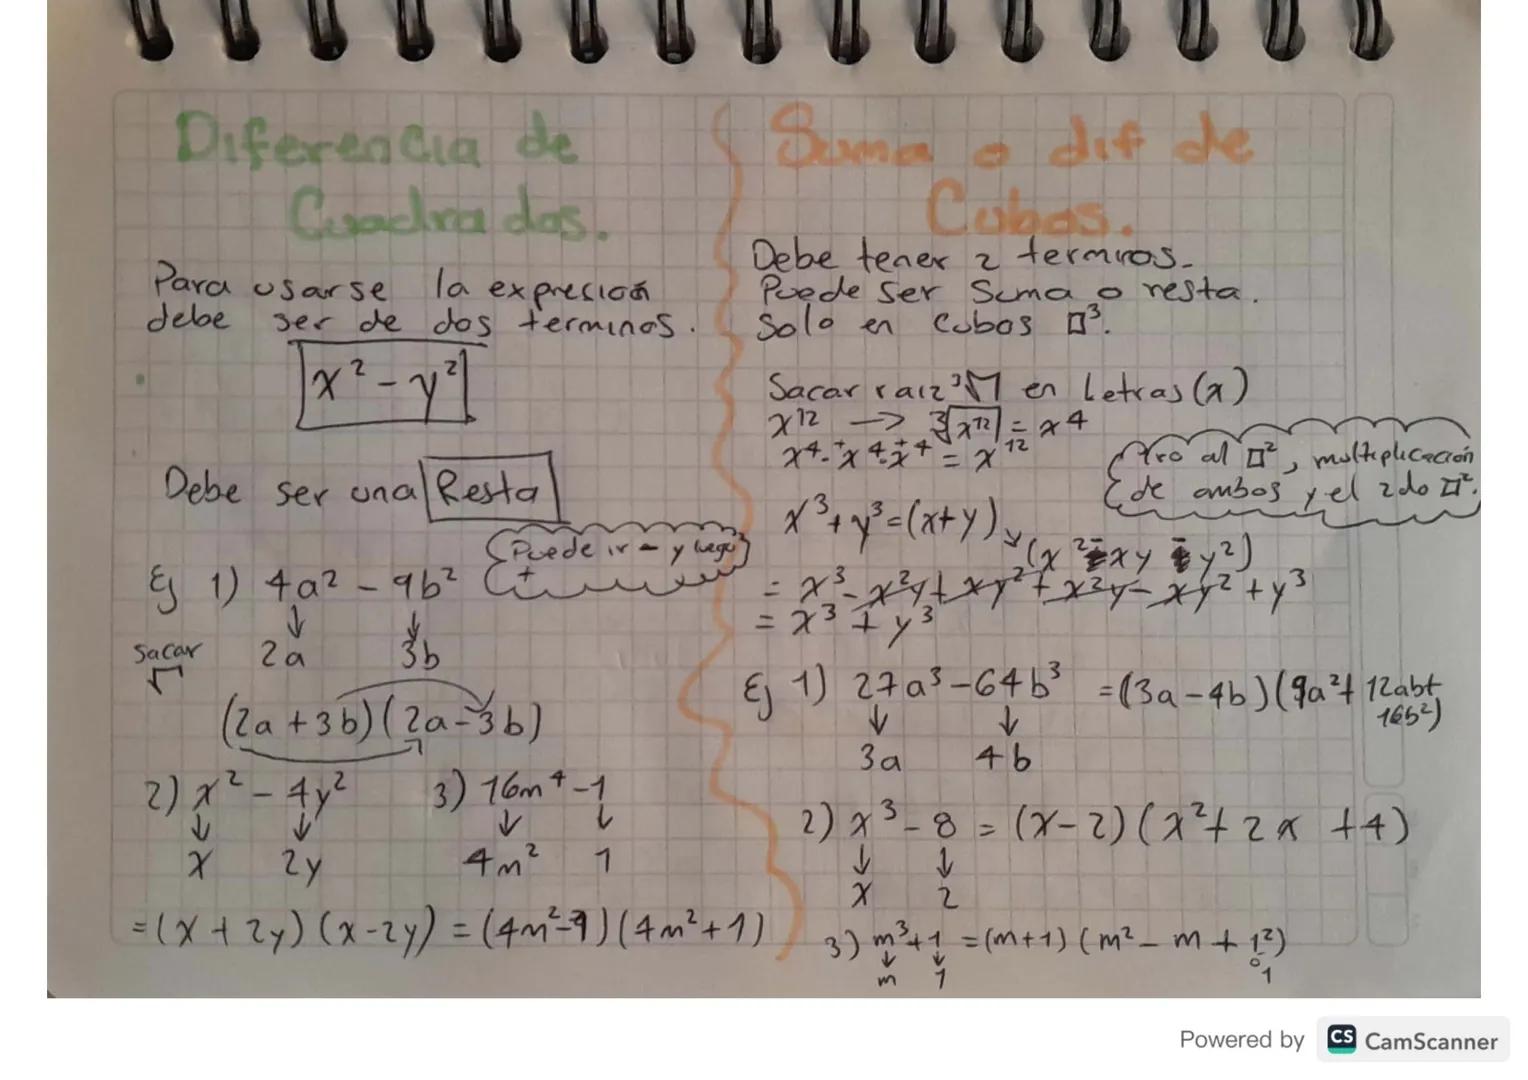 Diferencia de
Cuadrados.
Para usarse la expresión
debe ser de dos terminos.
x² - y²
Debe ser una Resta
Puede ir - y luego
+
Ej 1) 4a² - 9b²
sacar 2a 3b
√
(2a + 3b)(2a - 3b)
2) x² - 4y² 3) 16m⁴ - 1
x 2y 4m² 1
= (x + 2y) (x - 2y) = (4m² - 1) (4m² + 1)
Suma o dif de
Cubos.
Debe tener 2 terminos.
Puede ser suma o resta.
Solo en cubos □³.
Sacar raiz ³√ en letras (x)
x¹² → ³√x¹² = x⁴
x⁴ · x⁴ · x⁴ = x¹²
1ro al □², multiplicación
de ambos y el 2do □².
x³ + y³ = (x + y)
(x² - xy + y²)
= x³ - x²y + xy² + x²y - xy² + y³
= x³ + y³
Ej 1) 27a³ - 64b³ = (3a - 4b) (9a² + 12ab +
16b²)
3a 4b
2) x³ - 8 = (x - 2) (x² + 2x + 4)
x 2
3) m³ + 1 = (m + 1) (m² - m + 1²)
m 1 1
Powered by CS CamScanner